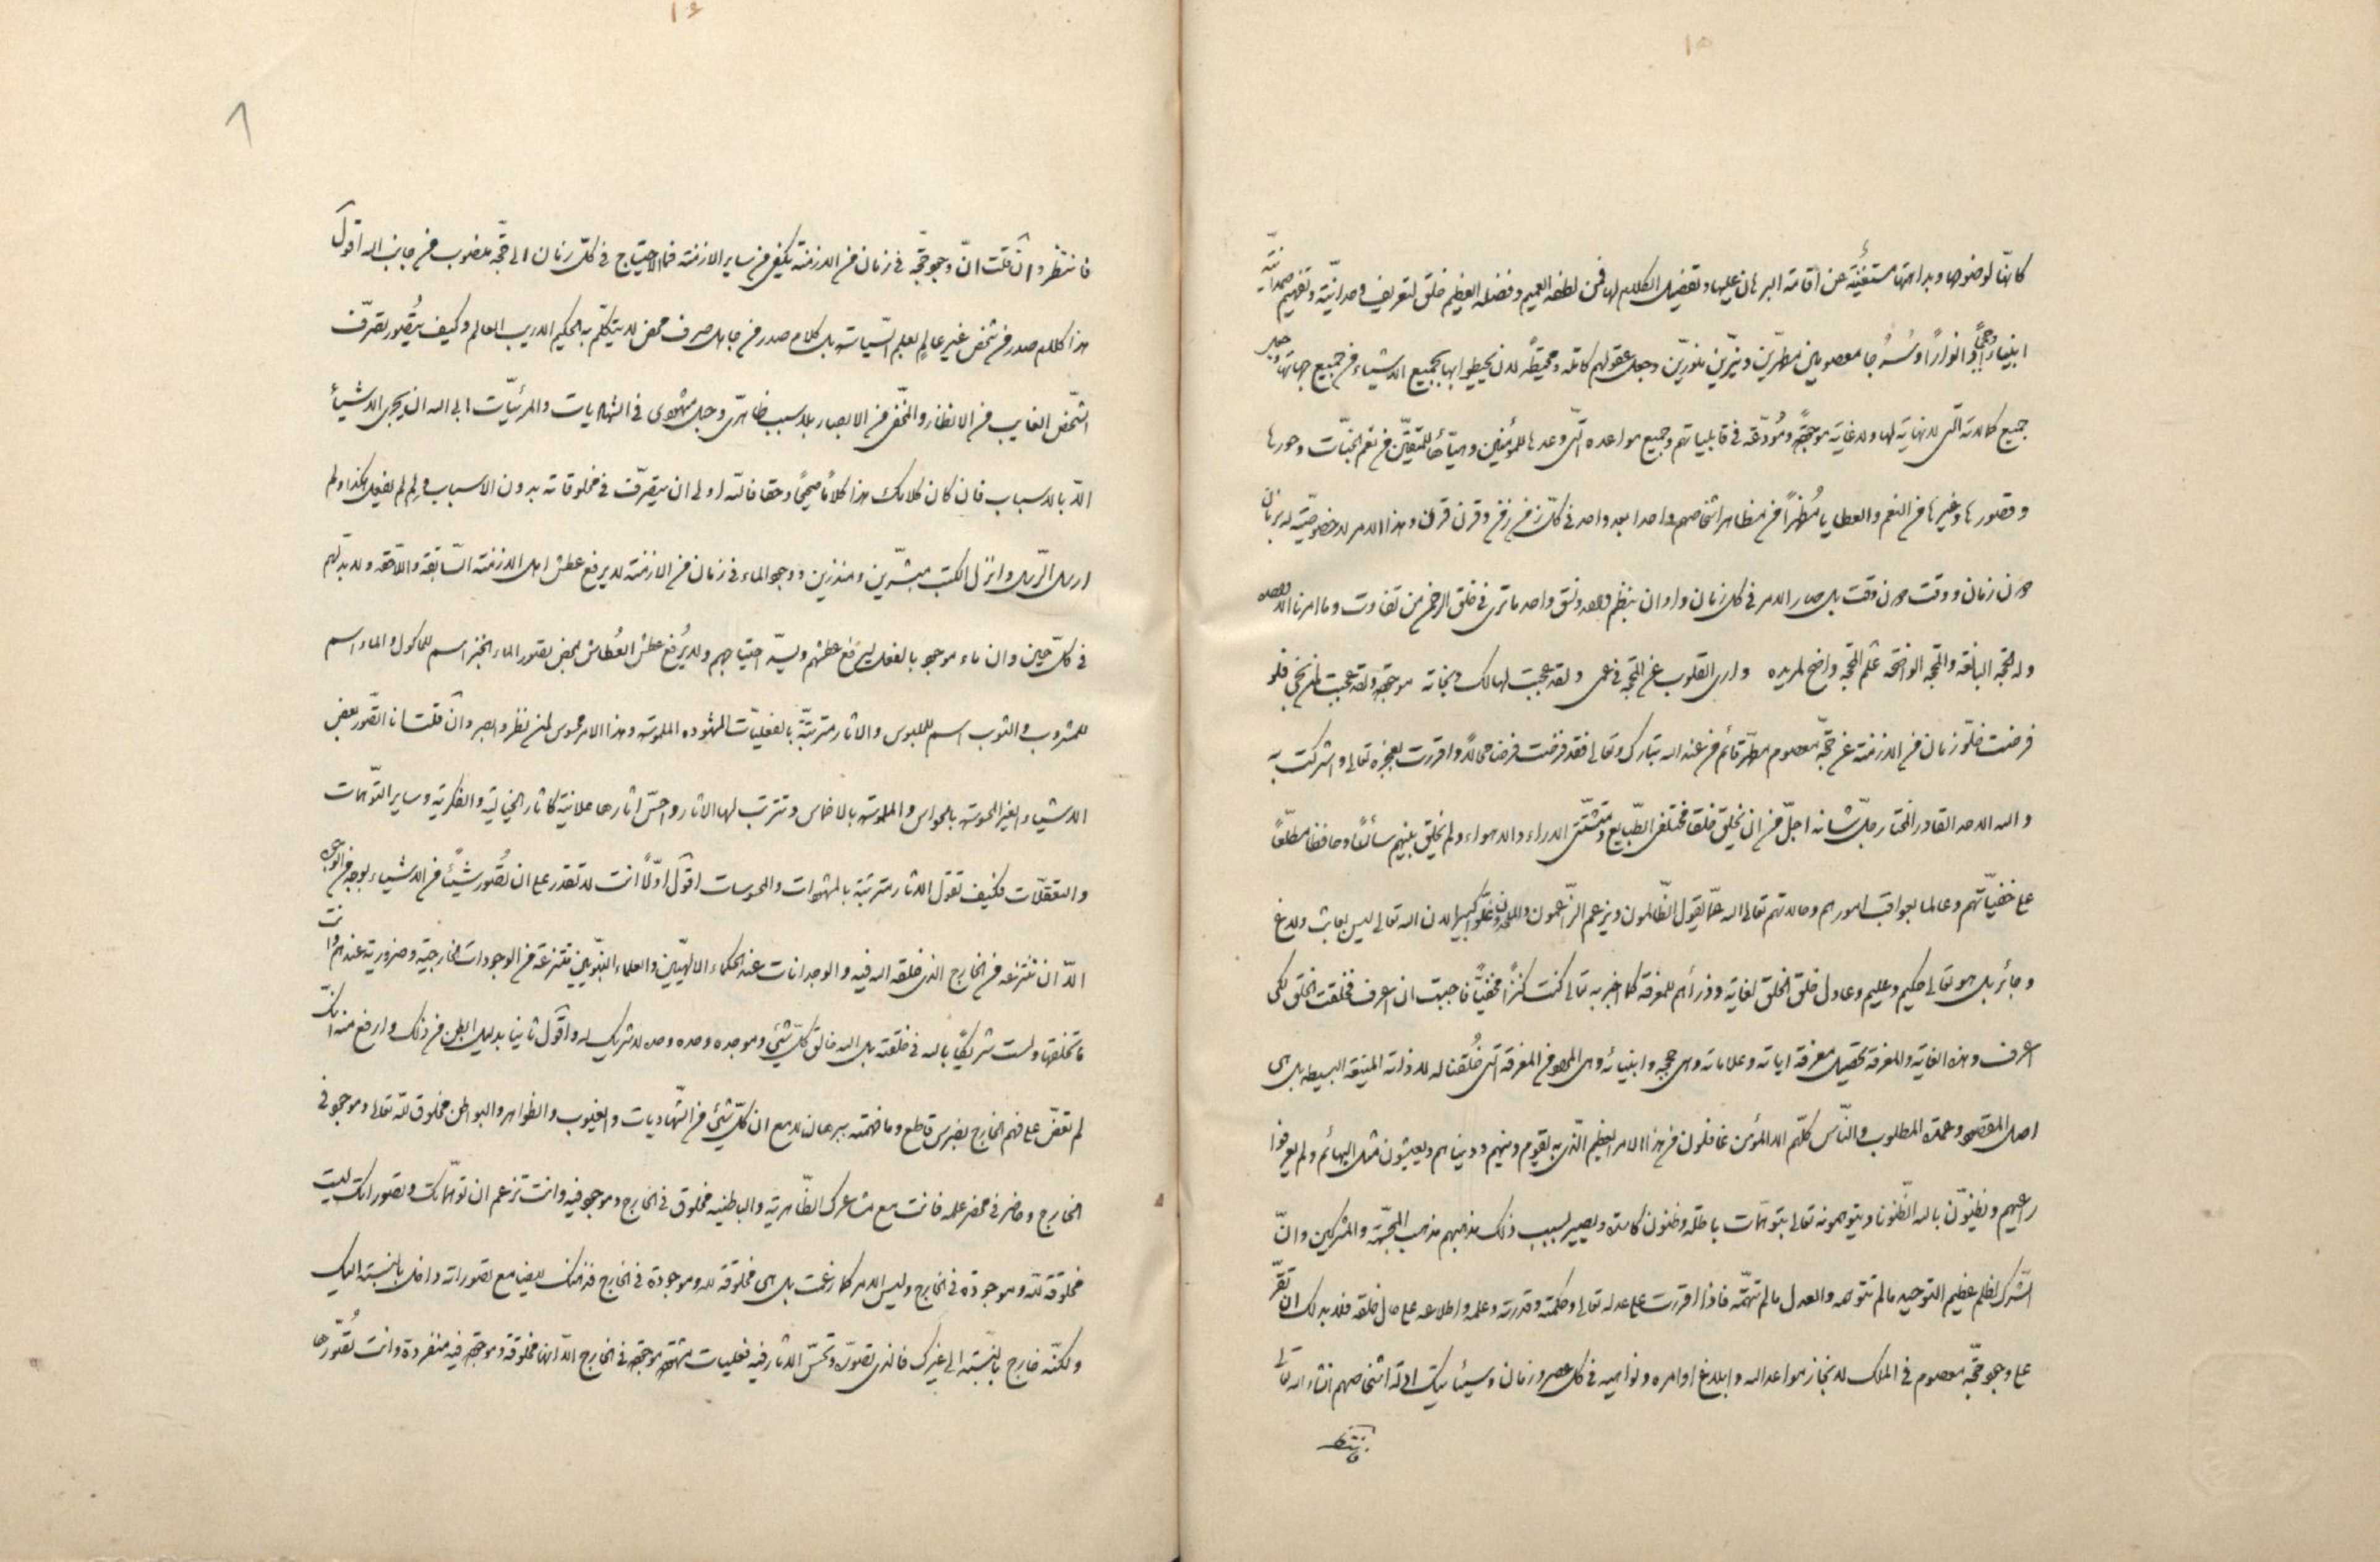 ١٥
كانها لوضوحها وبداهتها مستغنية عن اقامة البرهان عليها وتفصيل الكلام لها فمن لطفه العميم وفضله العظيم خلق لتعريف وحدانيته وتفهيم صمدانيته
انبياء وحججا وانوارا وسرجا معصومين مطهرين ونيرين منورين وجعل عقولهم كاملة ومحيطة لان يحيطوا بها بجميع الاشياء من جميع جهاتها وجعل
جميع كمالاته التي لا نهاية لها ولا غاية موجودة ومودعة في قابلياتهم وجميع مواعده التي وعدها للمؤمنين وهيأها للمتقين من نعم الجنات وحورها
وقصورها وغيرها من النعم والعطايا مظهرا من مظاهر اشخاصهم واحدا بعد واحد في كل زمن زمن وقرن قرن وهذا الامر لا خصوصية له بزمان
دون زمان ووقت دون وقت بل صار الامر في كل زمان واوان بنظم واحد ونسق واحد ما ترى في خلق الرحمن من تفاوت وما امرنا الا واحدة
وله الحجة البالغة والمحجة الواضحة علم المحجة واضح لمريده وارى القلوب عن المحجة في عمى ولقد عجبت لهالك ونجاته موجودة ولقد عجبت لمن نجى فلو
فرضت خلو زمان من الازمنة عن حجة معصوم مطهر قائم من عند الله تبارك وتعالى فقد فرضت فرضا محالا واقررت بعجزه تعالى واشركت به
والله الاحد القادر المختار جل شانه اجل من ان يخلق خلقا مختلفي الطبايع ومتشتتي الاراء والاهواء ولم يخلق بينهم سائسا وحافظا مطلعا
على خفياتهم وعالما بعواقب امورهم وحالاتهم تعالى الله عما يقول الظالمون ويزعم الزاعمون والملحدون علوا كبيرا لان الله تعالى ليس بعابث ولا لاغ
وجائر بل هو تعالى حكيم وعليم وعادل خلق الخلق لغاية وذرأهم للمعرفة كما اخبر به تعالى كنت كنزا مخفيا فاحببت ان اعرف فخلقت الخلق لكي
اعرف وهذه الغاية والمعرفة تحصيل معرفة اياته وعلاماته وهي حججه وانبيائه وهي المقصود من المعرفة التي خلقنا له لا ذاته المنيعة البسيطة بل هي
اصل المقصود وعمدة المطلوب والناس كلهم الا المؤمن غافلون من هذا الامر العظيم الذي به يقوم دينهم ودنياهم ويعيشون مثل البهائم ولم يعرفوا
راعيهم ويظنون بالله الظنونا ويتوهمونه تعالى بتوهمات باطلة وظنون كاسدة ويصير بسبب ذلك مذهبهم مذهب المجسمة والمشركين وان
الشرك لظلم عظيم التوحيد ما لم تتوهمه والعدل ما لم تتهمه فاذا اقررت على عدله تعالى وحكمته وقدرته وعلمه واطلاعه على حال خلقه فلا بد لك ان تقر
على وجود حجة معصوم في الملك لانجاز مواعد الله وابلاغ اوامره ونواهيه في كل عصر وزمان وسيأتيك ادلة اشخاصهم انشاء الله تعالى
فانتظر
١٤
فانتظر وان قلت ان وجود حجة في زمان من الازمنة يكفي من ساير الازمنة فما الاحتياج في كل زمان الى حجة منصوب من جانب الله اقول
هذا كلام صدر من شخص غير عالم بعلم السياسة بل كلام صدر من جاهل صرف محض لا يتكلم به الحكيم الاريب العالم وكيف يتصور تصرف
الشخص الغايب من الانظار والمخفي من الابصار بلا سبب ظاهري وجعل مشهودي في الشهاديات والمرئيات ابى الله ان يجري الاشياء
الا بالاسباب فان كان كلامك هذا كلاما صحيحا وحقا فالله اولى ان يتصرف في مخلوقاته بدون الاسباب ولم لم يفعل هكذا ولم
ارسل الرسل وانزل الكتب مبشرين ومنذرين ووجود الماء في زمان من الازمنة لا يرفع عطش اهل الازمنة السابقة واللاحقة ولا بد لهم
في كل حين وان ماء موجود بالفعل ليرفع عطشهم ويسد احتياجهم ولا يرفع عطش العطاش بمحض تصور الماء الخبز اسم للماكول والماء اسم
للمشروب والثوب اسم للملبوس والاثار مترتبة بالفعليات المشهودة الملموسة وهذا الامر محسوس لمن نظر وابصر وان قلت انا نتصور بعض
الاشياء الغير المحسوسة بالحواس والملموسة بالاخماس وتترتب لها الاثار واحس اثارها علانية كاثار الخيالية والفكرية وساير التوهمات
والتعقلات فكيف تقول الاثار مترتبة بالمشهودات والمحسوسات اقول اولا انت لا تقدر على ان تصور شيئا من الاشياء بوجه من الوجوه
الا ان تنتزعه من الخارج الذي خلقه الله فيه والوجدانات عند الحكماء الالهيين والعلماء النبويين منتزعة من الوجودات الخارجية وضرورية عندهم وانت
ما تخلقها ولست شريكا بالله في خلقته بل الله خالق كل شيئ وموجده وحده وحده لا شريك له واقول ثانيا بدليل ابطن من ذلك وارفع منه انك
لم تعض على فهم الخارج بضرس قاطع وما فهمته ببرهان لامع ان كل شيئ من الشهاديات والغيوب والظواهر والبواطن مخلوق لله تعالى وموجود في
الخارج وحاضر في محضر علمه فانت مع مشاعرك الظاهرية والباطنية مخلوق في الخارج وموجود فيه وانت تزعم ان توهماتك وتصوراتك ليست
مخلوقة لله وموجودة في الخارج وليس الامر كما زعمت بل هي مخلوقة لله وموجودة في الخارج فذهنك ايضا مع تصوراته داخل بالنسبة اليك
ولكنه خارج بالنسبة الى غيرك فالذي تصوره وتحس الاثار فيه فعليات مشهودة موجودة في الخارج الا انها مخلوقة وموجودة فيه منفردة وانت تصورها